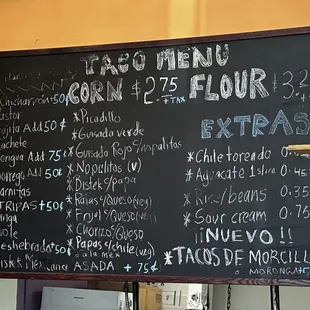 TACO MENU
CORN $2.75 +TAX FLOUR $3.2
Chicharron +50¢
astor
ajita Add 50¢
achete
engua Add 75¢
orrego Add 50¢
arnitas
TRIPAS +50¢
inga
eshebrada +50¢
istek Mexicana
* Picadillo
* Guisado verde
* Guisado Rojo c/nopalitos
* Nopalitos (v)
* Bistek c/papa
* Rajas c/Queso (veg)
* Frijol c/Queso (veg)
* Papas c/chile (veg)
o a la mex
ASADA +75¢
EXTRAS
* Chile toreado 0.
* Aguacate 1 slice 0.45
* Rice/beans 0.35
* Sour cream 0.75
¡¡NUEVO!!
* TACOS DE MORCILL
MORONGA